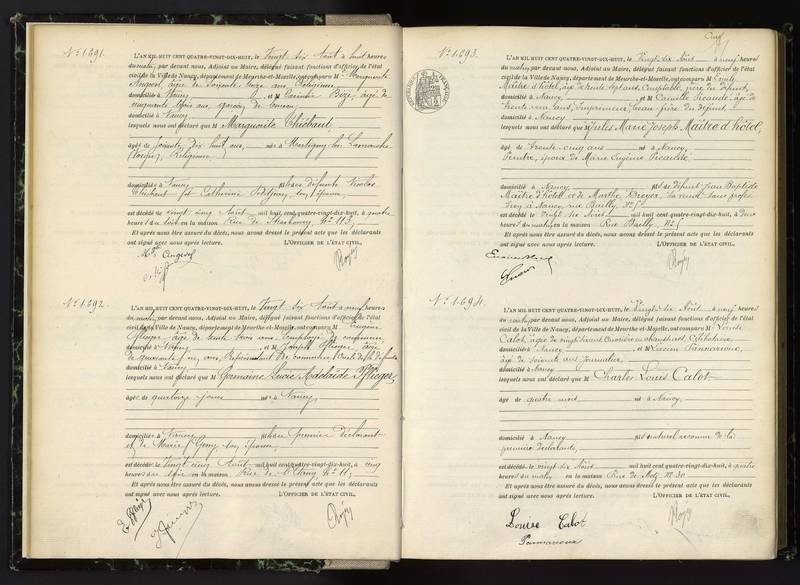 N° 1.691.
L'AN MIL HUIT CENT QUATRE-VINGT-DIX-HUIT, le Vingt six Août à huit heures
du matin, par devant nous, Adjoint au Maire, délégué faisant fonctions d'officier de l'état
civil de la Ville de Nancy, département de Meurthe-et-Moselle, ont comparu M Marguerite
âgée de soixante treize ans, Religieuse
domiciliée à Nancy et M Casimir âgé de
cinquante ans, garçon de bureau
domicilié à Nancy
lesquels nous ont déclaré que M Marguerite Thiébaut,
âgée de soixante dix huit ans, née à Martigny les
(Vosges), Religieuse,
domiciliée à Nancy fille des défunts Nicolas
Thiébaut et Catherine son épouse,
est décédée le vingt cinq Août mil huit cent quatre-vingt-dix-huit, à quatre
heures du soir en la maison Rue de Strasbourg, N° 113,
Et après nous être assuré du décès, nous avons dressé le présent acte que les déclarants
ont signé avec nous après lecture. L'OFFICIER DE L'ÉTAT CIVIL,
N° 1.692.
L'AN MIL HUIT CENT QUATRE-VINGT-DIX-HUIT, le Vingt six Août à neuf heures
du matin, par devant nous, Adjoint au Maire, délégué faisant fonctions d'officier de l'état
civil de la Ville de Nancy, département de Meurthe-et-Moselle, ont comparu M Eugène
Pflieger âgé de trente trois ans, Employé de commerce
domicilié à Nancy et M Joseph Pflieger âgé
de quarante ans, Représentant de commerce, Oncle de la défunte
domicilié à Nancy
lesquels nous ont déclaré que M Germaine Lucie Adelaïde Pflieger,
âgée de quatorze jours née à Nancy,
domiciliée à Nancy fille du premier déclarant
et de Marie son épouse
est décédée le Vingt cinq Août mil huit cent quatre-vingt-dix-huit, à cinq
heures du soir en la maison Rue de N° 11,
Et après nous être assuré du décès, nous avons dressé le présent acte que les déclarants
ont signé avec nous après lecture. L'OFFICIER DE L'ÉTAT CIVIL,
N° 1.693.
L'AN MIL HUIT CENT QUATRE-VINGT-DIX-HUIT, le Vingt six Août à neuf heures
du matin, par devant nous, Adjoint au Maire, délégué faisant fonctions d'officier de l'état
civil de la Ville de Nancy, département de Meurthe-et-Moselle, ont comparu M Emile
Maître d'hôtel, âgé de trente sept ans, Comptable, frère du défunt,
domicilié à Nancy et M Camille Picaude, âgé de
trente un ans, Imprimeur, beau-frère du défunt,
domicilié à Nancy
lesquels nous ont déclaré que M Jules Marie Joseph Maître d'hôtel,
âgé de trente cinq ans né à Nancy,
Peintre, époux de Marie Eugénie Picaude
domicilié à Nancy fils de défunt Jean Baptiste
Maître d'hôtel et de Marthe Breyer, sa veuve, sans
à Nancy, rue Bailly, N° 5
est décédé le Vingt six Août mil huit cent quatre-vingt-dix-huit, à deux
heures du matin en la maison Rue Bailly, N° 5
Et après nous être assuré du décès, nous avons dressé le présent acte que les déclarants
ont signé avec nous après lecture. L'OFFICIER DE L'ÉTAT CIVIL,
N° 1.694.
L'AN MIL HUIT CENT QUATRE-VINGT-DIX-HUIT, le Vingt six Août à neuf heures
du matin, par devant nous, Adjoint au Maire, délégué faisant fonctions d'officier de l'état
civil de la Ville de Nancy, département de Meurthe-et-Moselle, ont comparu M Louise
Calot, âgée de vingt huit ans, Ouvrière en chaussures, Célibataire,
domiciliée à Nancy et M Lucien Pannaroux,
âgé de soixante ans, journalier,
domicilié à Nancy
lesquels nous ont déclaré que M Charles Louis Calot
âgé de quatre mois né à Nancy,
domicilié à Nancy fils naturel reconnu de la
première déclarante,
est décédé le vingt six Août mil huit cent quatre-vingt-dix-huit, à quatre
heures du matin en la maison Rue de Metz, N° 30
Et après nous être assuré du décès, nous avons dressé le présent acte que les déclarants
ont signé avec nous après lecture. L'OFFICIER DE L'ÉTAT CIVIL,
Louise Calot
Pannaroux